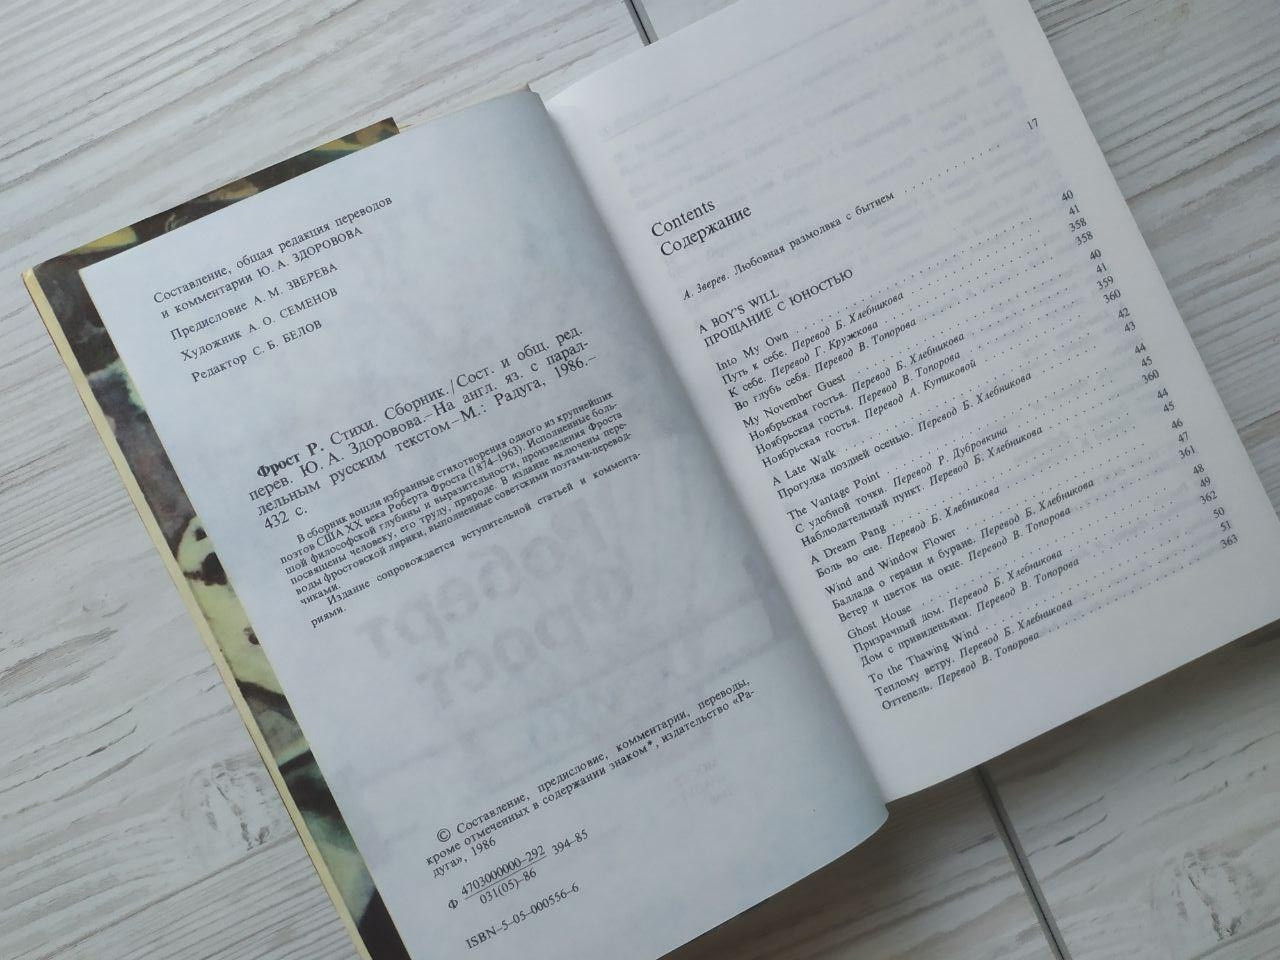 Составление, общая редакция переводов
и комментарии Ю. А. ЗДОРОВОВА
Предисловие А. М. ЗВЕРЕВА
Художник А. О. СЕМЕНОВ
Редактор С. Б. БЕЛОВ
Фрост Р. Стихи. Сборник./Сост. и общ. ред.
перев. Ю. А. Здоровова.–На англ. яз. с парал-
лельным русским текстом–М.: Радуга, 1986.–
432 с.
В сборник вошли избранные стихотворения одного из крупнейших
поэтов США XX века Роберта Фроста (1874-1963). Исполненные боль-
шой философской глубины и выразительности, произведения Фроста
посвящены человеку, его труду, природе. В издание включены пере-
воды фростовской лирики, выполненные советскими поэтами-перевод-
чиками.
Издание сопровождается вступительной статьей и коммента-
риями.
© Составление, предисловие, комментарии, переводы,
кроме отмеченных в содержании знаком*, издательство «Ра-
дуга», 1986
Ф 4703000000–292 394–85
031(05)–86
ISBN–5–05–000556–6
Contents
Содержание
А. Зверев. Любовная размолвка с бытием . . . . . . . . . . 17
A BOY'S WILL
ПРОЩАНИЕ С ЮНОСТЬЮ
Into My Own . . . . . . . . . . 40
Путь к себе. Перевод Б. Хлебникова . . . . . . . . . . 41
К себе. Перевод Г. Кружкова . . . . . . . . . . 358
Во глубь себя. Перевод В. Топорова . . . . . . . . . . 358
My November Guest . . . . . . . . . . 40
Ноябрьская гостья. Перевод Б. Хлебникова . . . . . . . . . . 41
Ноябрьская гостья. Перевод В. Топорова . . . . . . . . . . 359
Ноябрьская гостья. Перевод А. Кутиковой . . . . . . . . . . 360
A Late Walk . . . . . . . . . . 42
Прогулка поздней осенью. Перевод Б. Хлебникова . . . . . . . . . . 43
The Vantage Point . . . . . . . . . . 44
С удобной точки. Перевод Р. Дубровкина . . . . . . . . . . 45
Наблюдательный пункт. Перевод Б. Хлебникова . . . . . . . . . . 360
A Dream Pang . . . . . . . . . . 44
Боль во сне. Перевод Б. Хлебникова . . . . . . . . . . 45
Wind and Window Flower . . . . . . . . . . 46
Баллада о герани и буране. Перевод Б. Хлебникова . . . . . . . . . . 47
Ветер и цветок на окне. Перевод В. Топорова . . . . . . . . . . 361
Ghost House . . . . . . . . . . 48
Призрачный дом. Перевод Б. Хлебникова . . . . . . . . . . 49
Дом с привиденьями. Перевод В. Топорова . . . . . . . . . . 362
To the Thawing Wind . . . . . . . . . . 50
Теплому ветру. Перевод Б. Хлебникова . . . . . . . . . . 51
Оттепель. Перевод В. Топорова . . . . . . . . . . 363